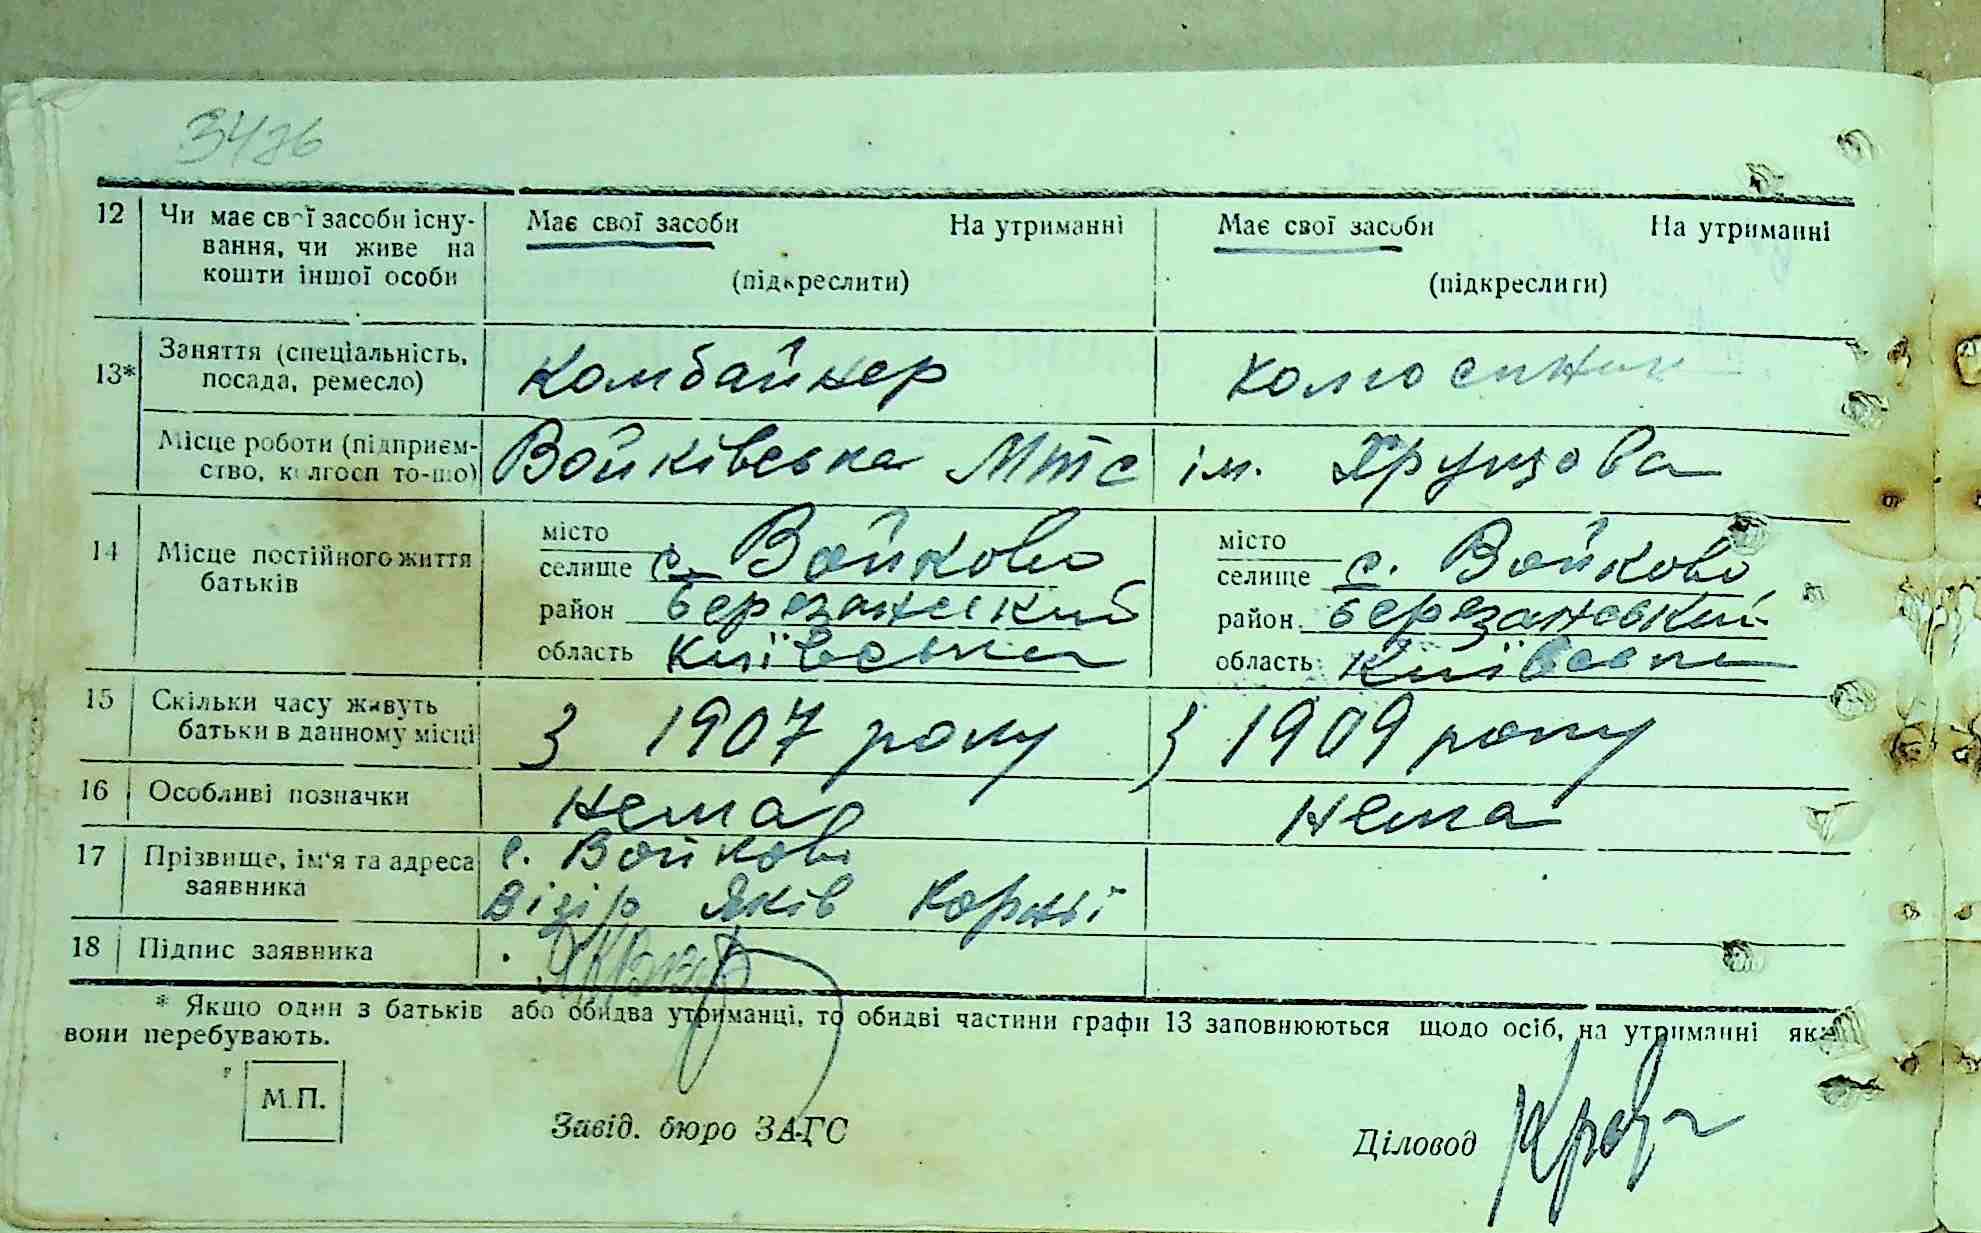 12 Чи має свої засоби існу- Має свої засоби На утриманні Має свої засоби На утриманні
вання, чи живе на
кошти іншої особи (підкреслити) (підкреслити)
13* Заняття (спеціальність, комбайнер колгоспник
посада, ремесло)
Місце роботи (підприєм- Войківська МТС ім. Хрущова
ство, колгосп то-що)
14 Місце постійного життя місто місто
батьків селище с. Войково селище с. Войково
район Березанський район Березанський
область Київська область Київська
15 Скільки часу живуть з 1907 року з 1909 року
батьки в данному місці
16 Особливі позначки нема нема
17 Прізвище, ім'я та адреса с. Войкове
заявника Візір Яків
18 Підпис заявника
* Якщо один з батьків або обидва утриманці, то обидві частини графи 13 заповнюються щодо осіб, на утриманні яких
вони перебувають.
М.П.
Завід. бюро ЗАГС Діловод